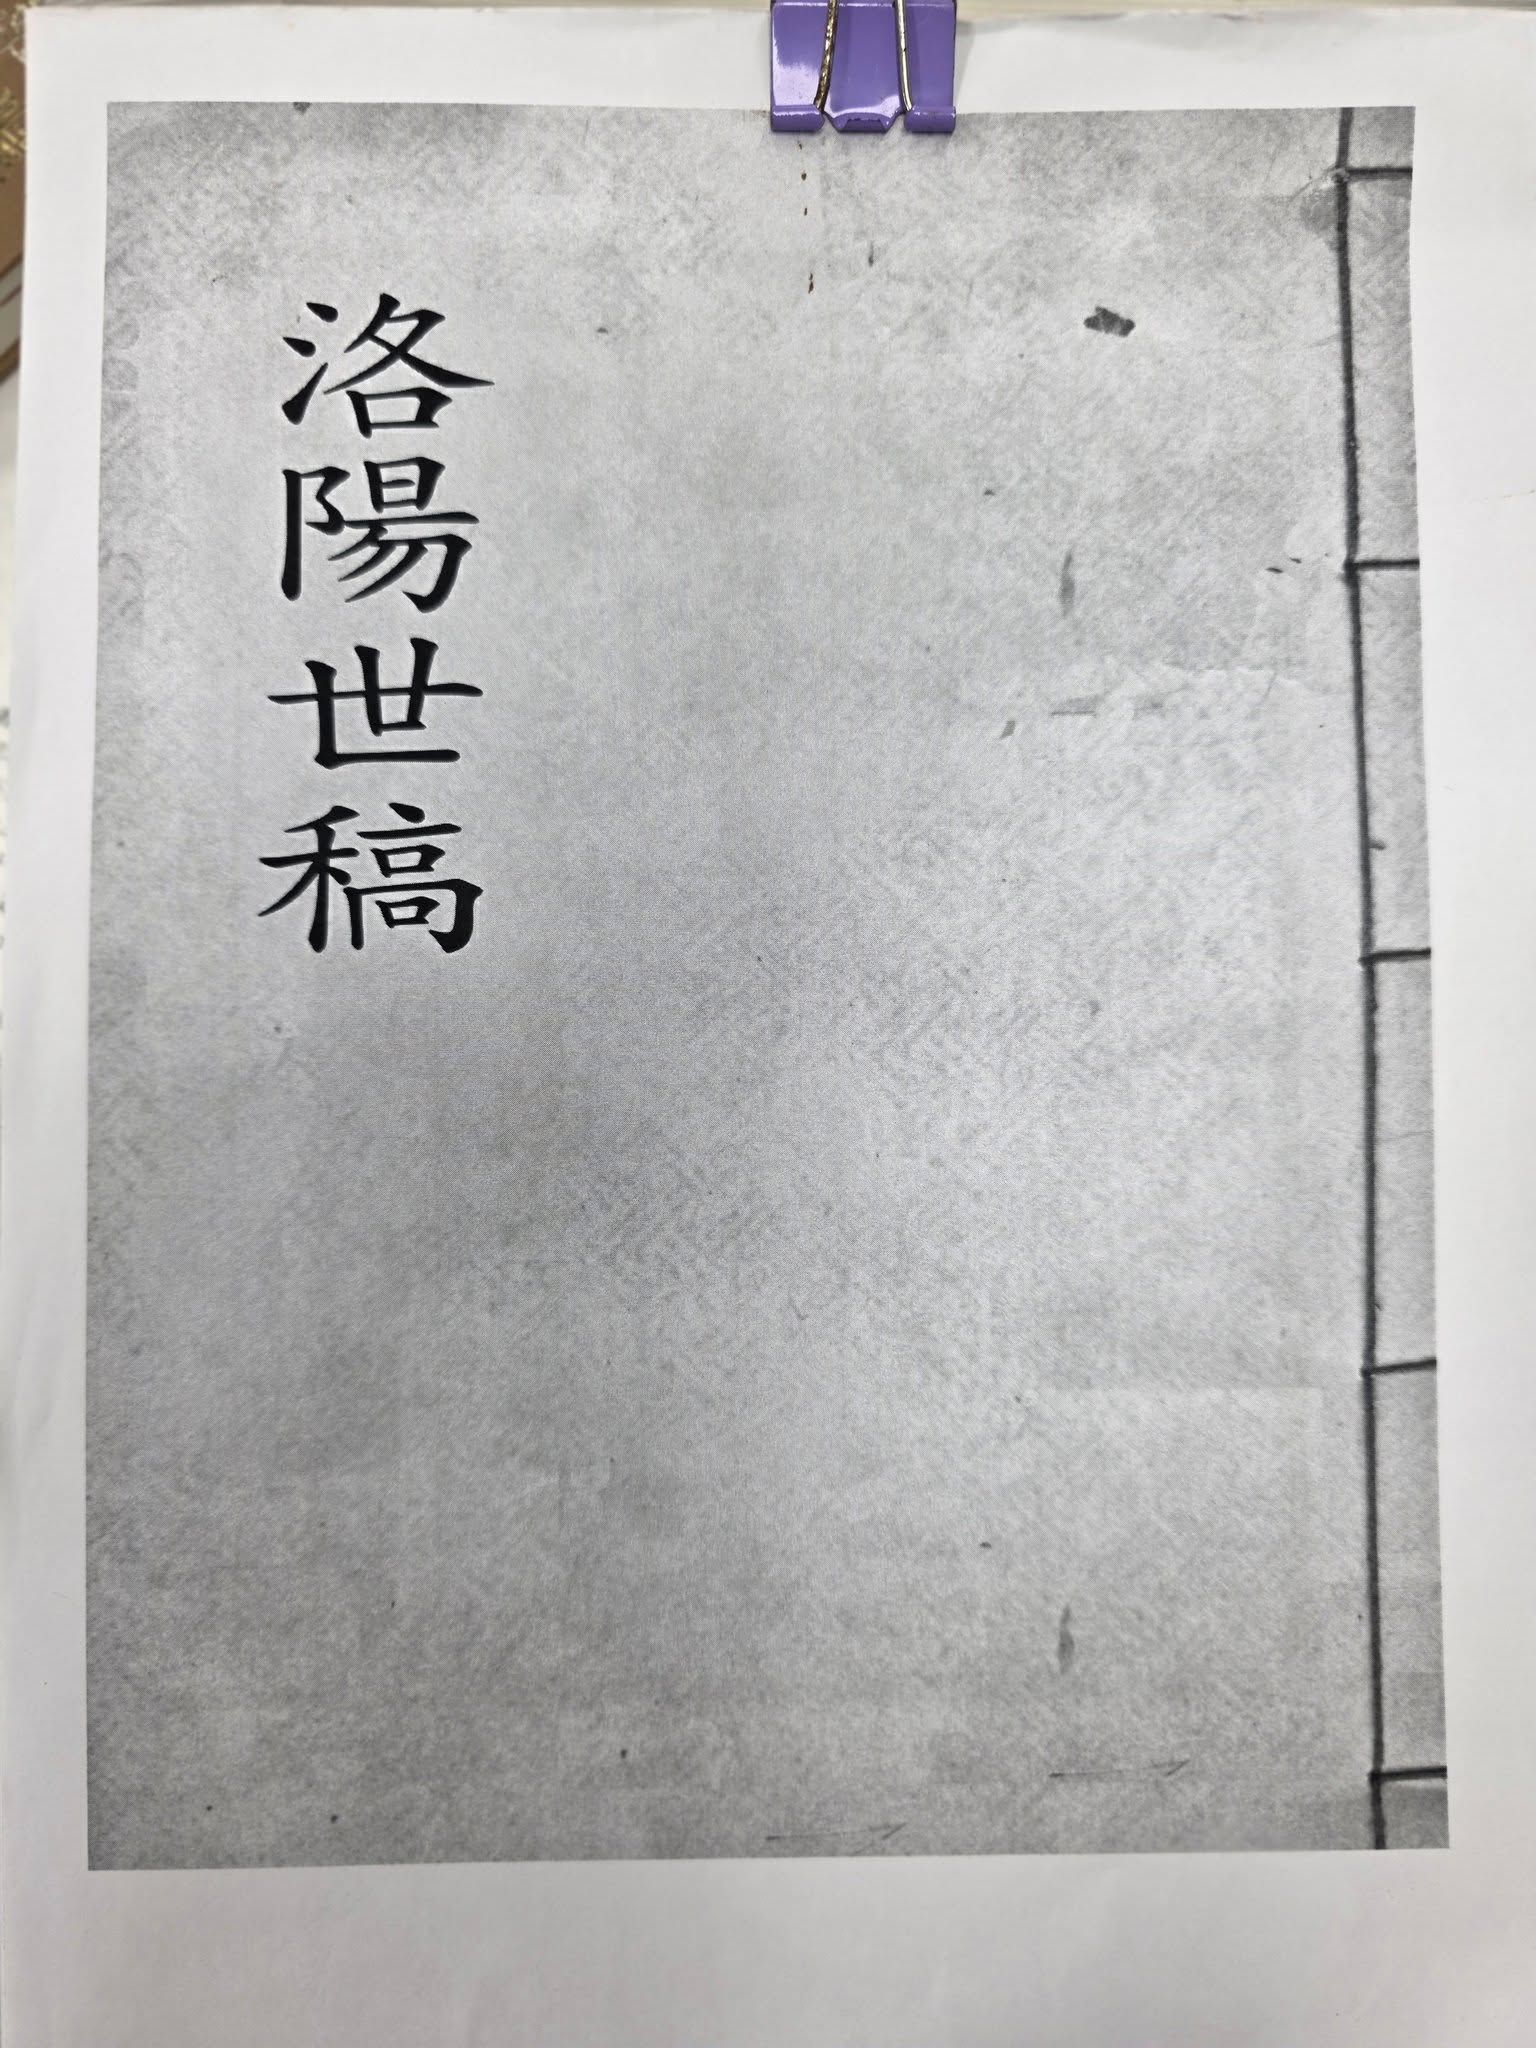 洛陽世稿